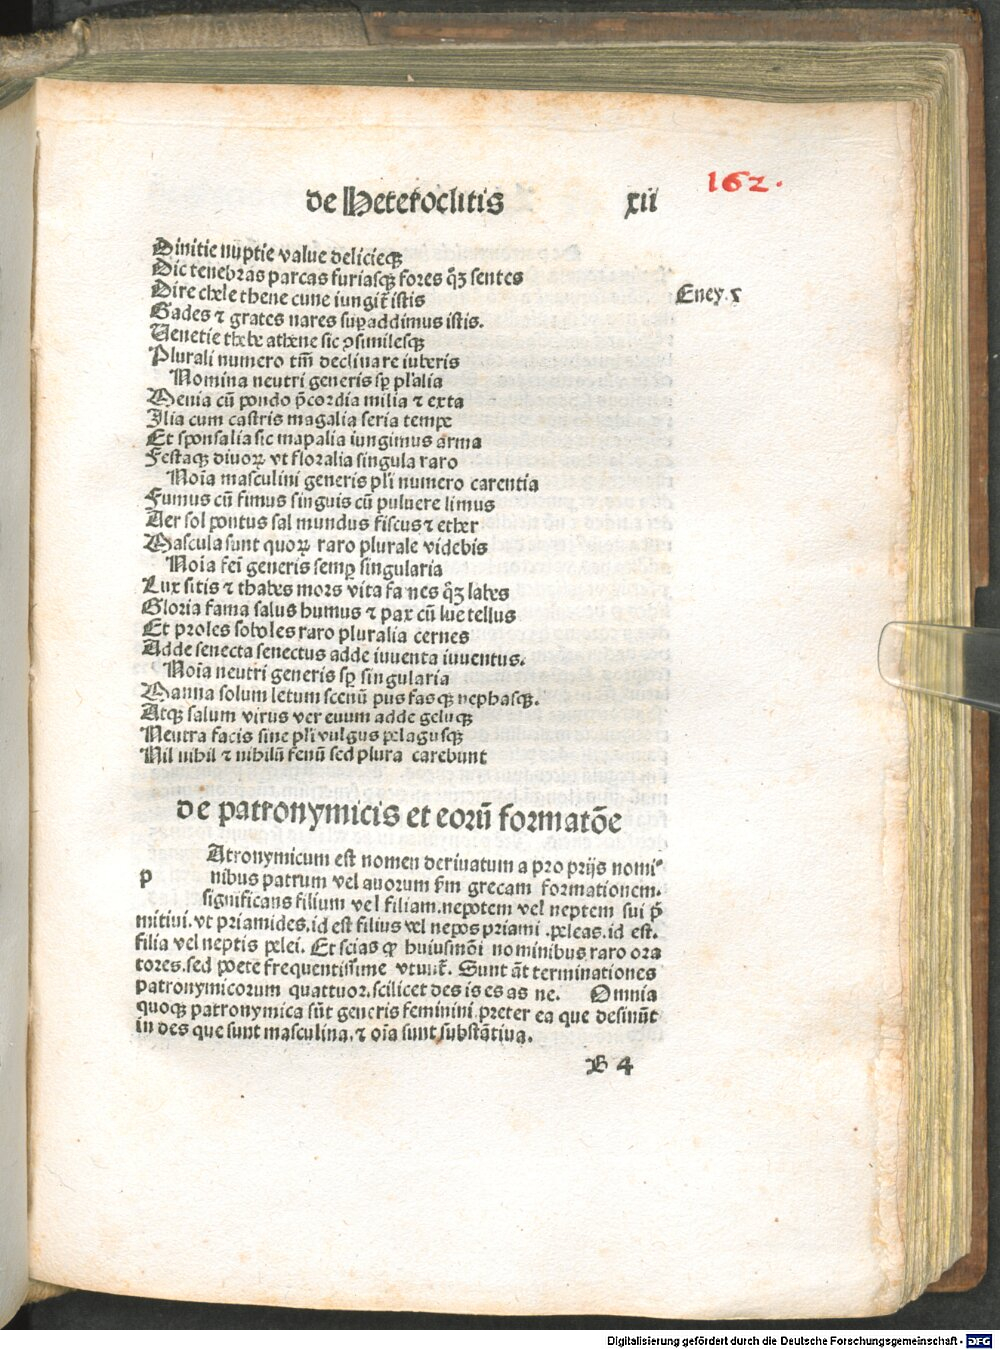 de Heteroclitis xii
162.
Diuitie nuptie value delicieqꝫ
Dic tenebras parcas furiasqꝫ fores q̃ꝫ sentes
Dire chele thene cune iungit᷑ istis
Eney. x
Gades ⁊ grates nares sup̱addimus istis.
Uenetie thebe athene sic ꝓsimilesqꝫ
Plurali numero tm̄ declinare iuberis
Nomina neutri generis sp̱ pl'alia
Menia cū pondo p̄cordia milia ⁊ exta
Ilia cum castris magalia seria tempe
Et sponsalia sic mapalia iungimus arma
Festaqꝫ diuoꝝ vt floralia singula raro
Noīa masculini generis pl'i numero carentia
Fumus cū fimus singuis cū puluere limus
Aer sol pontus sal mundus fiscus ⁊ ether
Mascula sunt quoꝝ raro plurale videbis
Noīa feī generis semp̱ singularia
Lux sitis ⁊ thabes mors vita fames q̃ꝫ labes
Gloria fama salus humus ⁊ pax cū lue tellus
Et proles soboles raro pluralia cernes
Adde senecta senectus adde iuuenta iuuentus.
Noīa neutri generis sp̱ singularia
Manna solum letum scenū pus fasqꝫ nephasqꝫ.
Atqꝫ salum virus ver euum adde geluqꝫ
Neutra facis sine pl'i vulgus pelagusqꝫ
Nil nihil ⁊ nihilū fenū sed plura carebunt
de patronymicis et eorū formatōe
p Atronymicum est nomen deriuatum a proprijs nomi⸗
nibus patrum vel auorum ẜm grecam formationem.
significans filium vel filiam.nepotem vel neptem sui p̄
mitiui.vt priamides.id est filius vel nepos priami .peleas.id est.
filia vel neptis pelei. Et scias ꝙ huiusmōi nominibus raro ora
tores.sed poete frequentissime vtunt᷑. Sunt āt terminationes
patronymicorum quattuor.scilicet des is es as ne. Omnia
quoqꝫ patronymica sūt generis feminini preter ea que desinūt
in des que sunt masculina.⁊ oīa sunt substātiua.
B 4
Digitalisierung gefördert durch die Deutsche Forschungsgemeinschaft - DFG